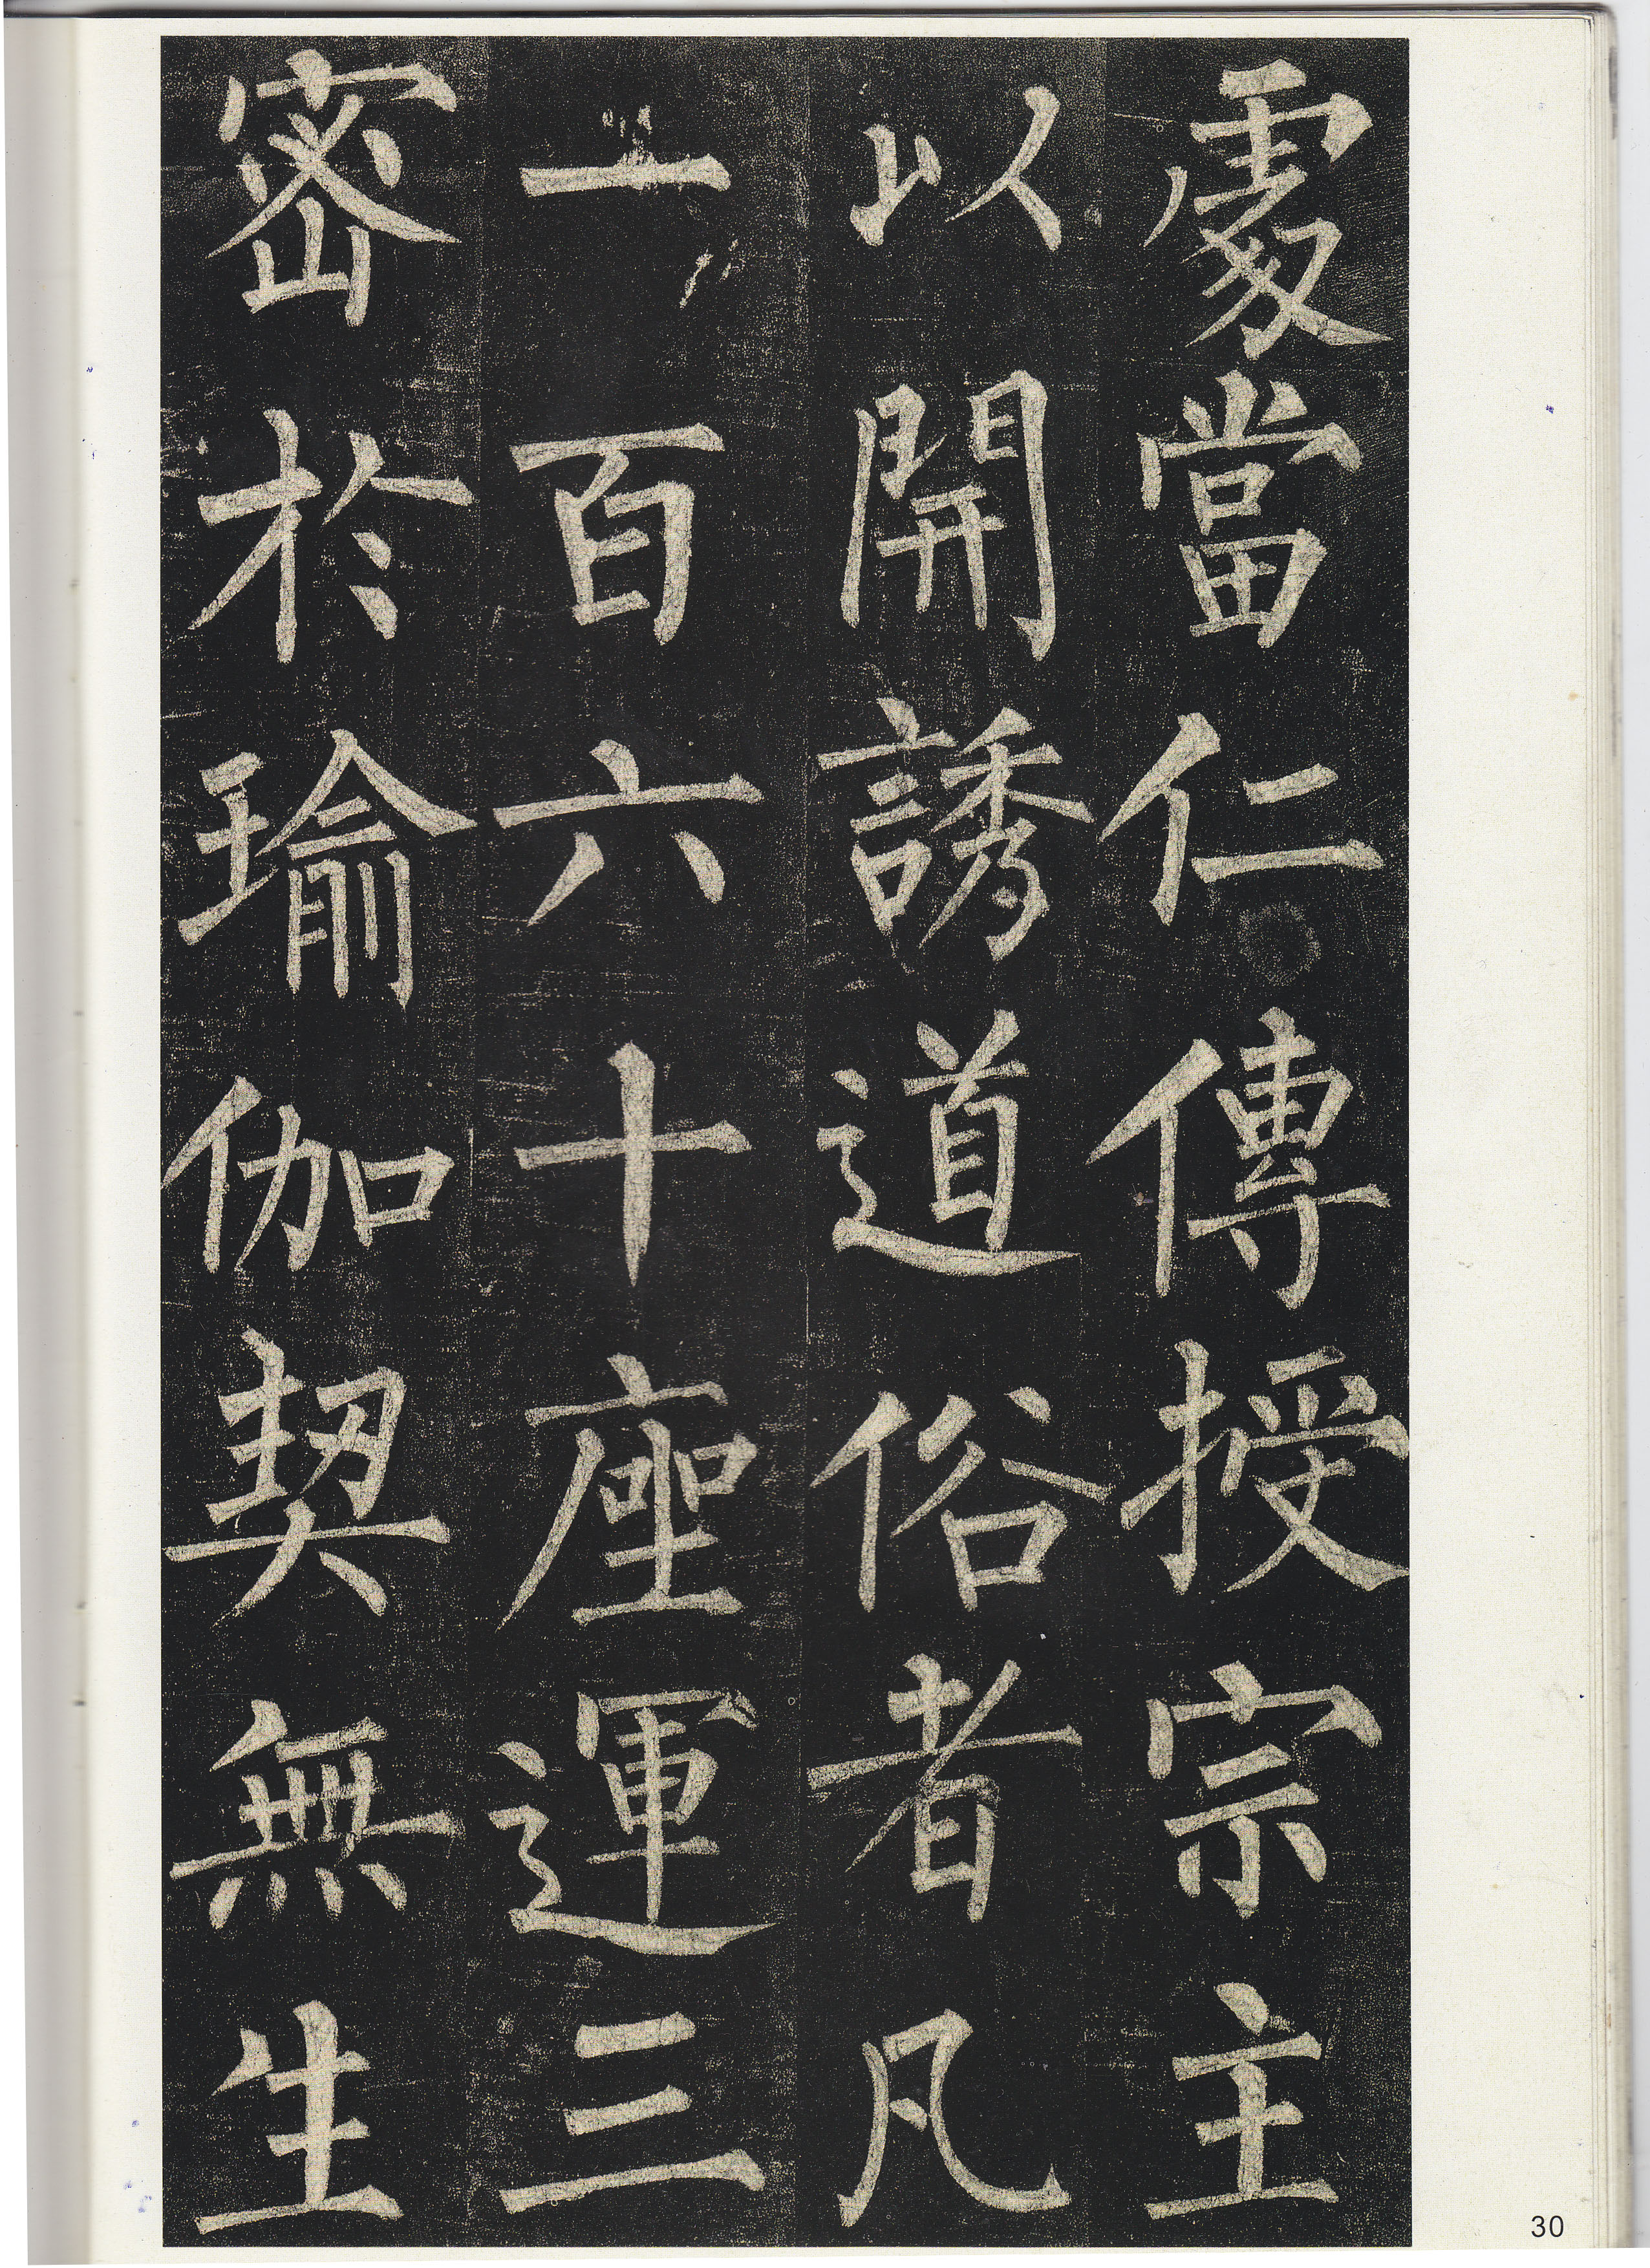 處當仁傳授宗主
以開誘道俗者凡
一百六十座運三
密於瑜伽契無生
30